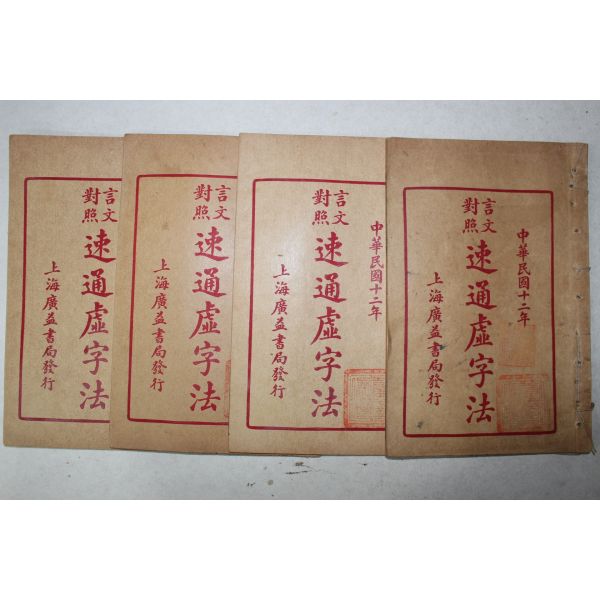 中華民國十二年
言文
對照
速通虛字法
上海廣益書局發行
中華民國十二年
言文
對照
速通虛字法
上海廣益書局發行
言文
對照
速通虛字法
上海廣益書局發行
言文
對照
速通虛字法
上海廣益書局發行